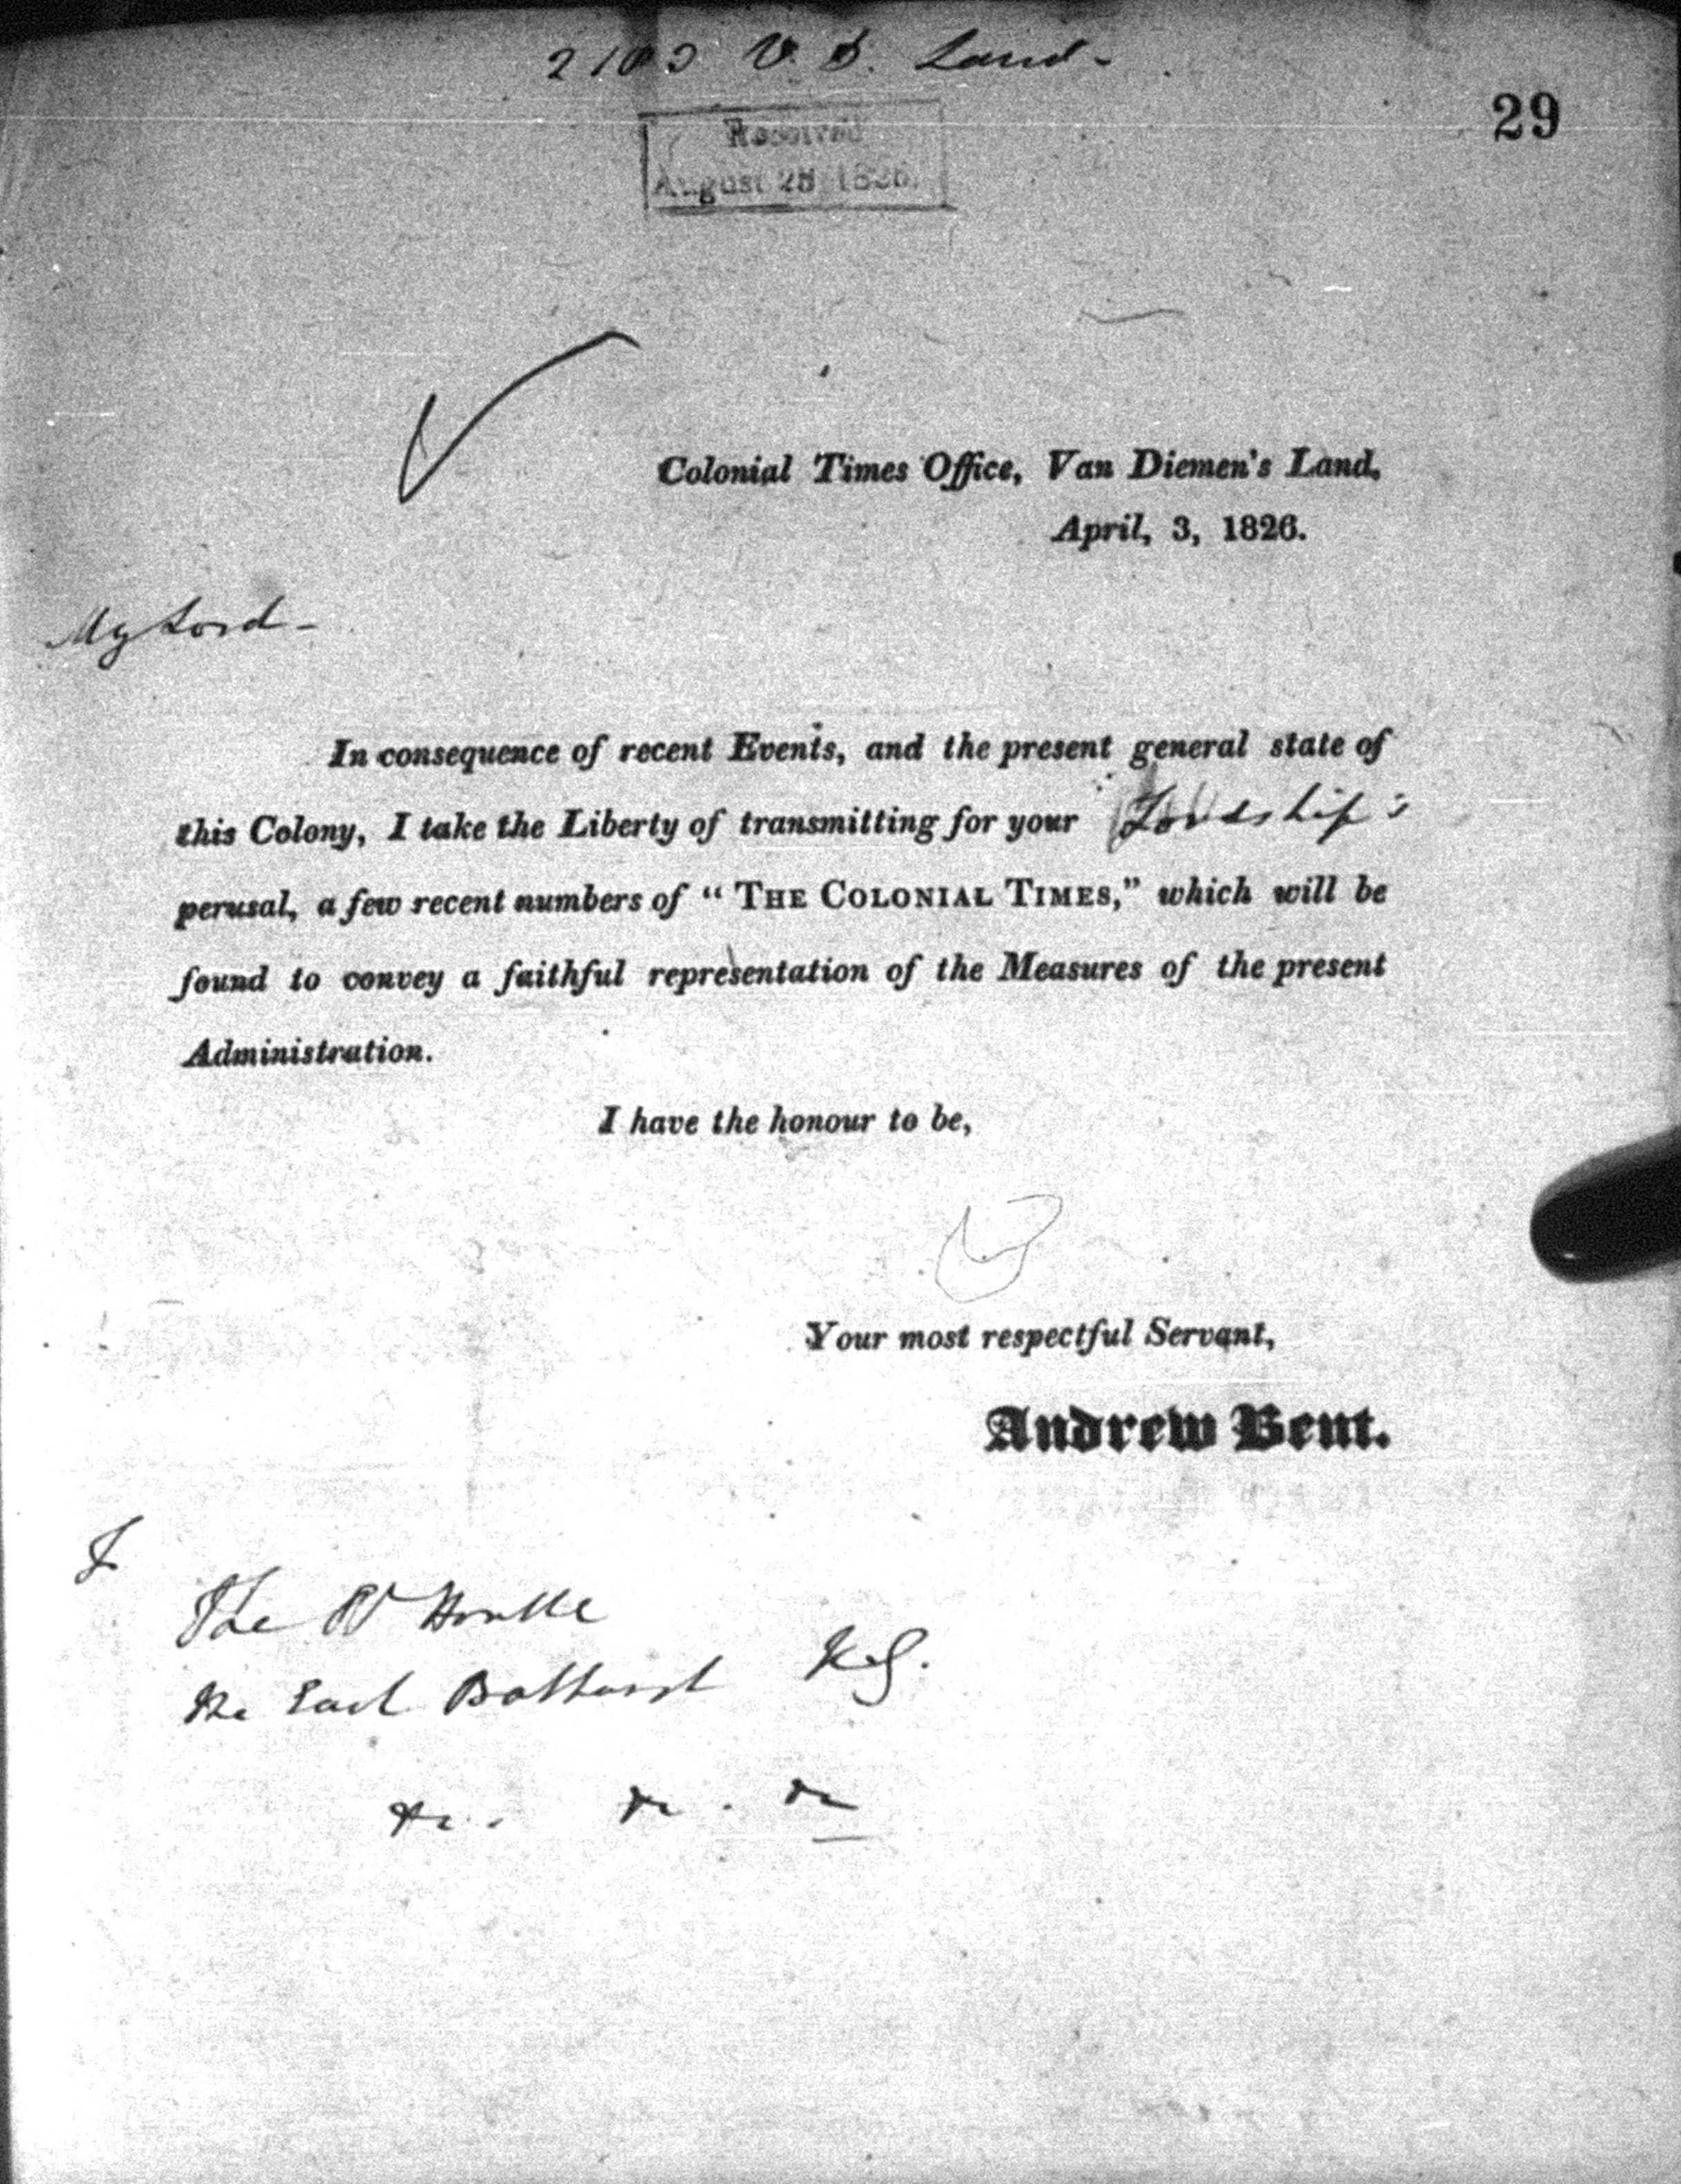 V. D. Land -
29
Received
August 28 1826.
Colonial Times Office, Van Diemen's Land,
April, 3, 1826.
My Lord -
In consequence of recent Events, and the present general state of
this Colony, I take the Liberty of transmitting for your Lordship's
perusal, a few recent numbers of “ THE COLONIAL TIMES,” which will be
found to convey a faithful representation of the Measures of the present
Administration.
I have the honour to be,
Your most respectful Servant,
Andrew Bent.
To
The Rt Honble
the Earl Bathurst K.G.
&c. &c. &c